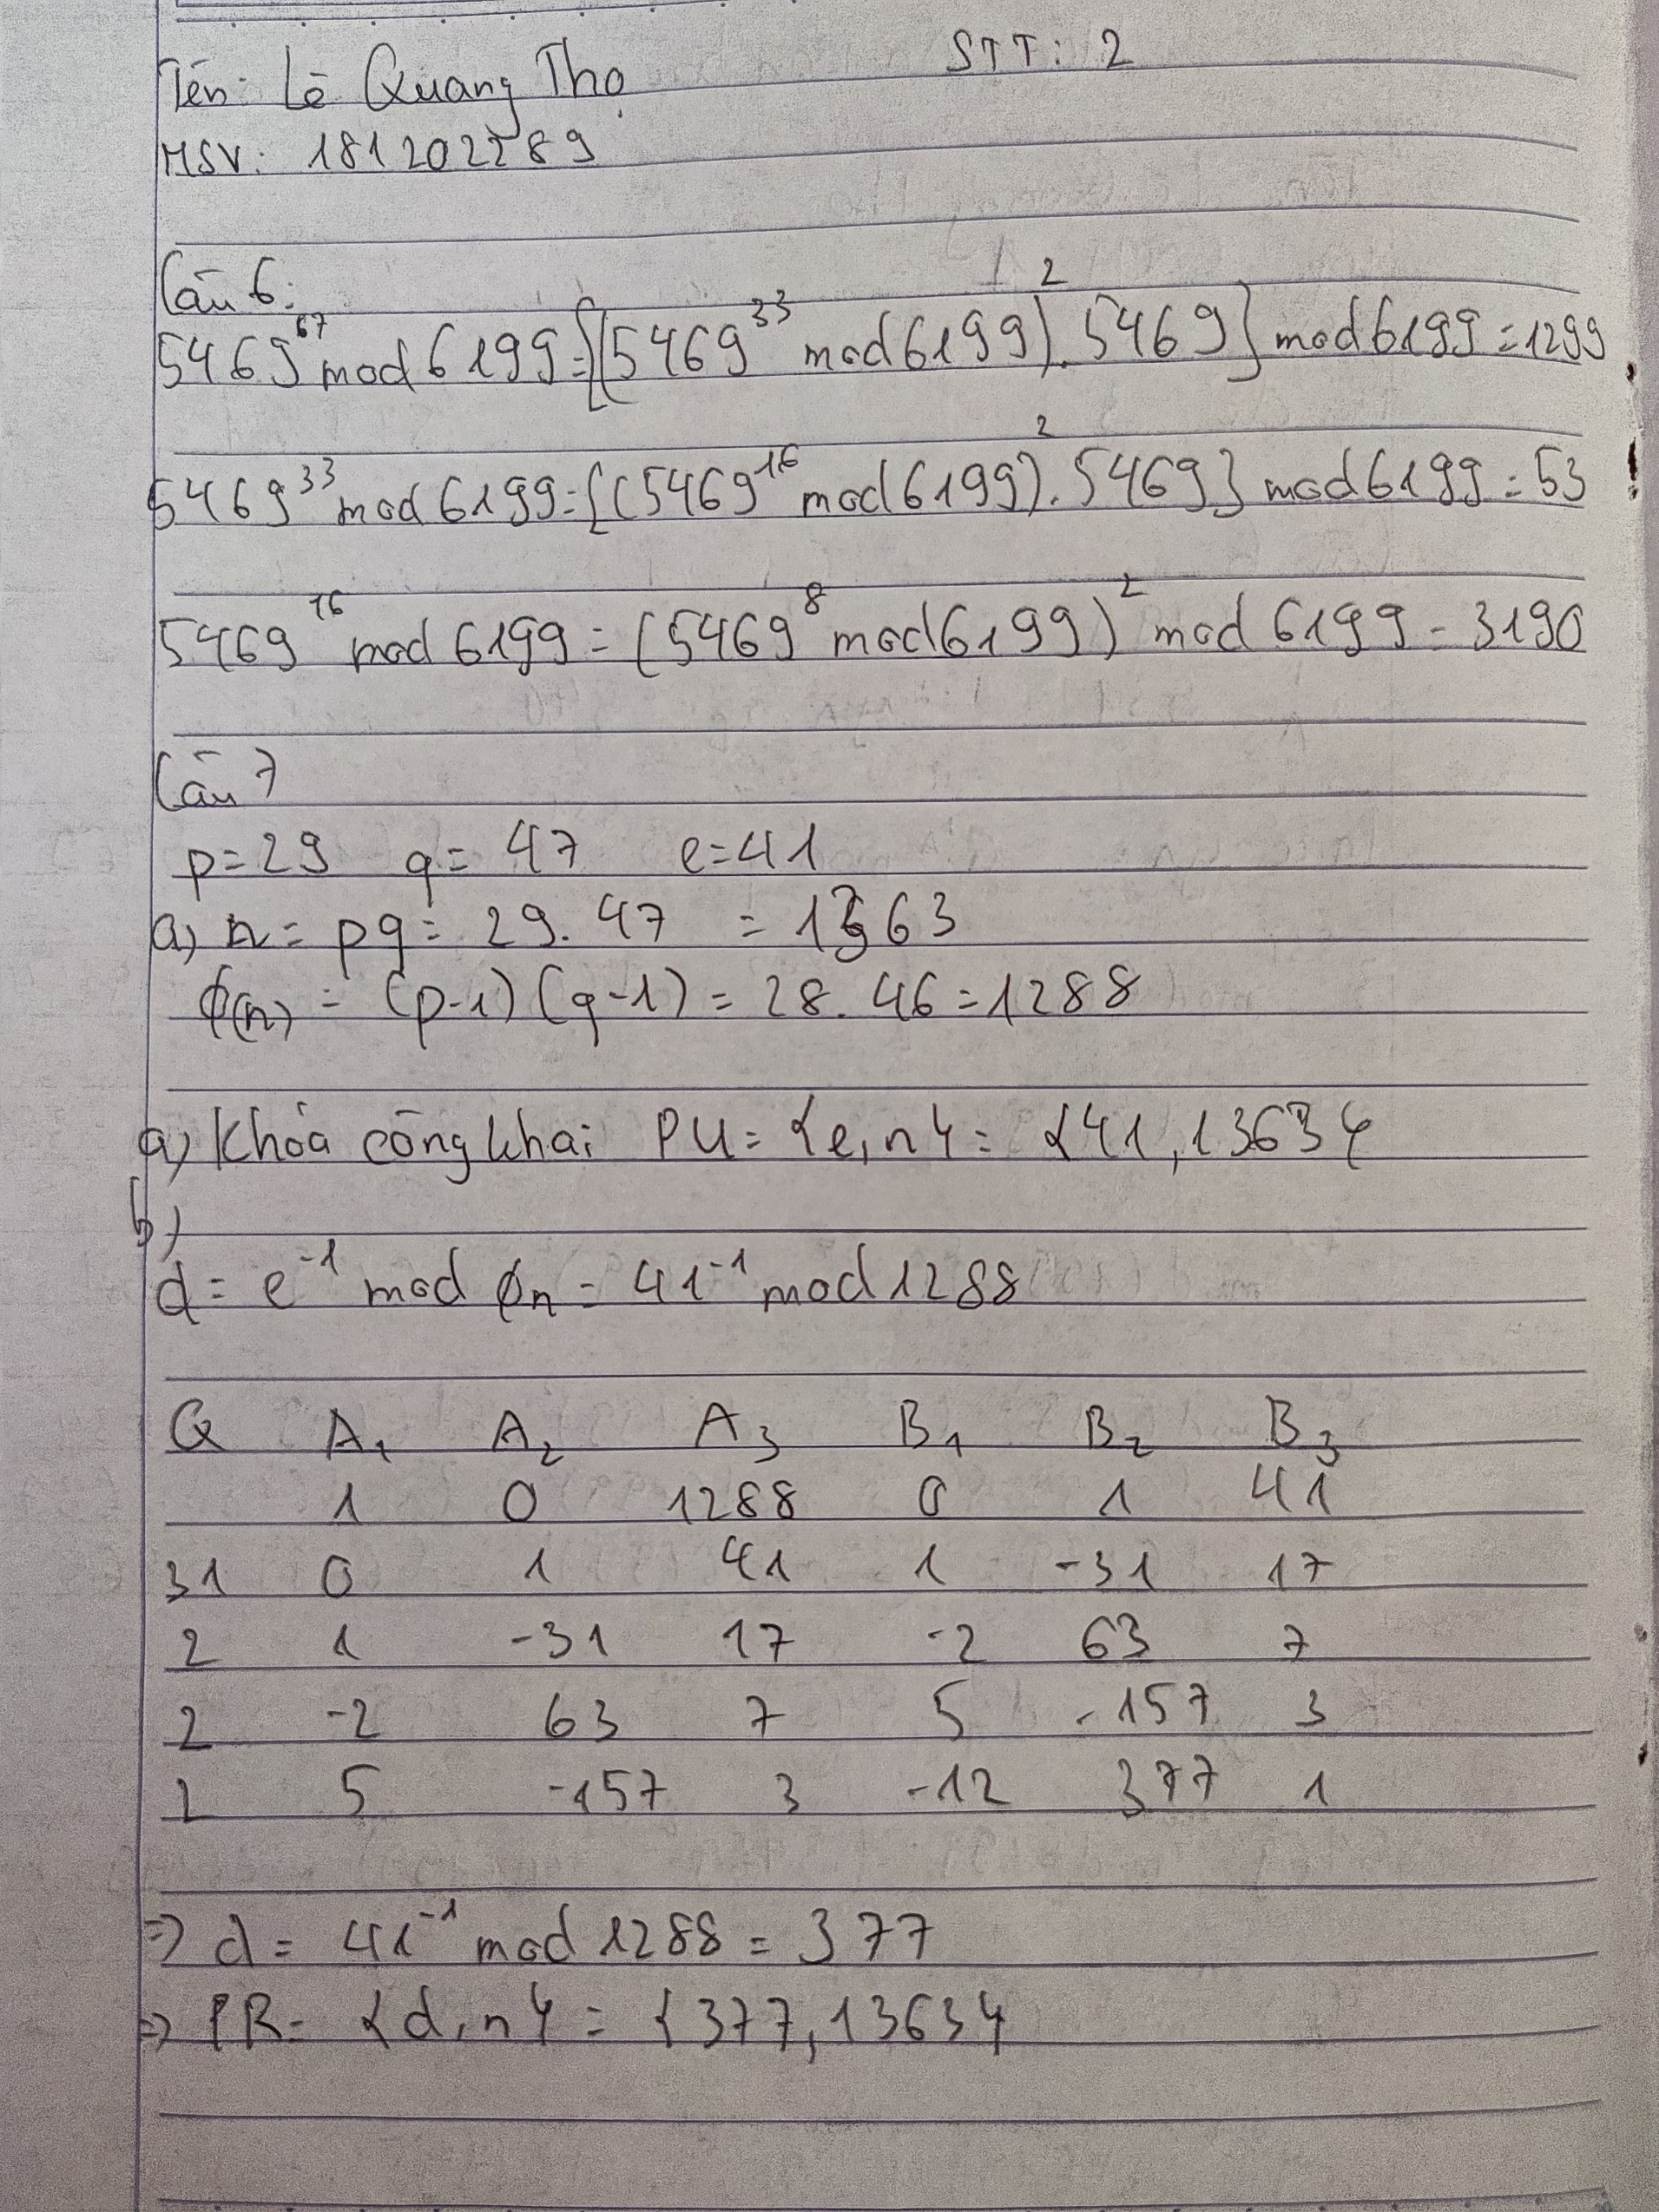 Tên: Lê Quang Thọ STT: 2
MSV: 181202289
Câu 6:
5469^67 mod 6199 = {(5469^33 mod 6199)^2 . 5469} mod 6199 = 1299
5469^33 mod 6199 = {(5469^16 mod 6199)^2 . 5469} mod 6199 = 53
5469^16 mod 6199 = (5469^8 mod 6199)^2 mod 6199 = 3190
Câu 7
p=29 q= 47 e=41
a) n = pq = 29. 47 = 1363
ϕ(n) = (p-1) (q-1) = 28. 46 = 1288
a) Khóa công khai PU = {e, n} = {41, 1363}
b)
d = e^-1 mod ϕn = 41^-1 mod 1288
Q A1 A2 A3 B1 B2 B3
1 0 1288 0 1 41
31 0 1 41 1 -31 17
2 1 -31 17 -2 63 7
2 -2 63 7 5 -157 3
2 5 -157 3 -12 377 1
=> d = 41^-1 mod 1288 = 377
=> PR = {d, n} = {377, 1363}